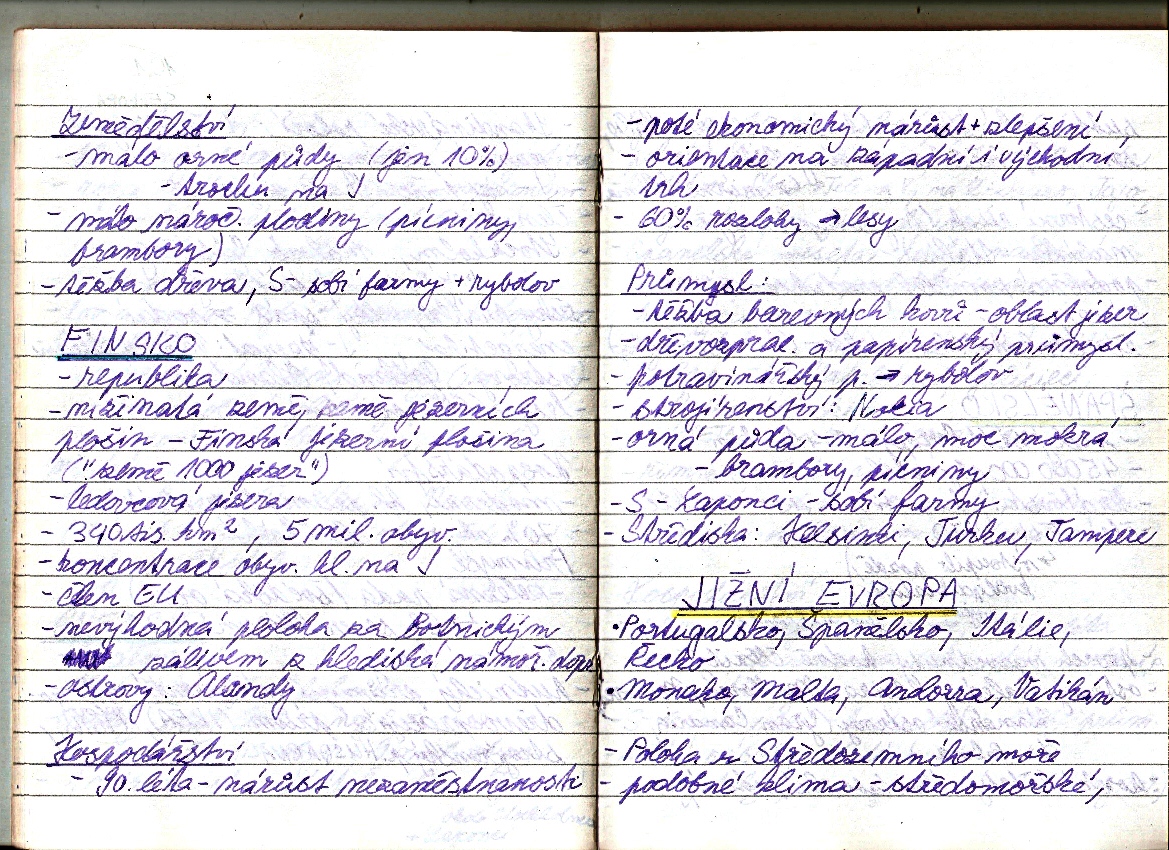 Zemědělství
- málo orné půdy (jen 10%)
- trochu na J
- málo nároč. plodiny (pícniny,
brambory)
- těžba dřeva, S- sobí farmy + rybolov
FINSKO
- republika
- nížinatá země, země jezerních
plošin - Finská jezerní plošina
("země 1000 jezer")
- ledovcová jezera
- 340 tis. km², 5 mil. obyv.
- koncentrace obyv. hl. na J
- člen EU
- nevýhodná poloha za Botnickým
zálivem z hlediska námoř. dopr.
- ostrovy: Alandy
Hospodářství
- 90. léta - nárůst nezaměstnanosti
- poté ekonomický nárůst + zlepšení
- orientace na západní i východní
trh
- 60% rozlohy → lesy
Průmysl:
- těžba barevných kovů - oblast jezer
- dřevozprac. a papírenský průmysl.
- potravinářský p. → rybolov
- strojírenství: Nokia
- orná půda - málo, moc mokrá
- brambory, pícniny
- S - Laponci - sobí farmy
- Střediska: Helsinki, Turku, Tampere
JIŽNÍ EVROPA
• Portugalsko, Španělsko, Itálie,
Řecko
• Monako, Malta, Andorra, Vatikán
- Poloha u Středozemního moře
- podobné klima - středomořské,